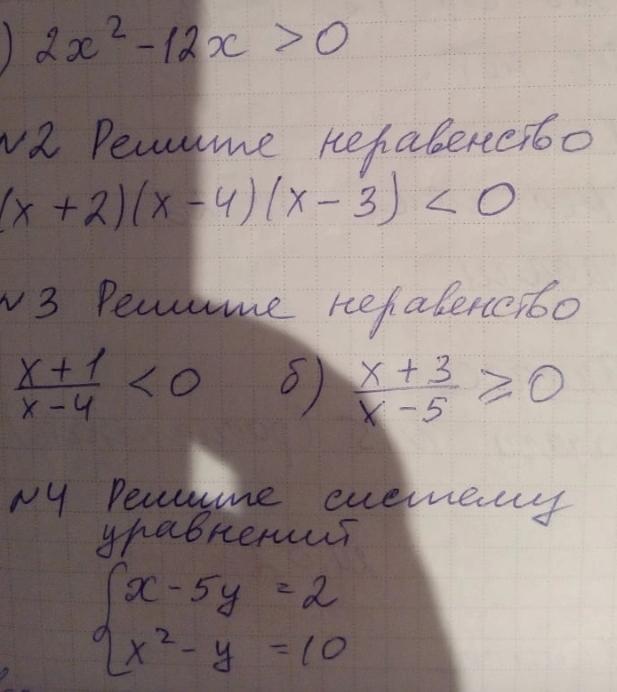 ) 2x² - 12x > 0
№2 Решите неравенство
(x + 2)(x - 4)(x - 3) < 0
№3 Решите неравенство
(x + 1)/(x - 4) < 0 б) (x + 3)/(x - 5) ≥ 0
№4 Решите систему
уравнений
{ x - 5y = 2
x² - y = 10